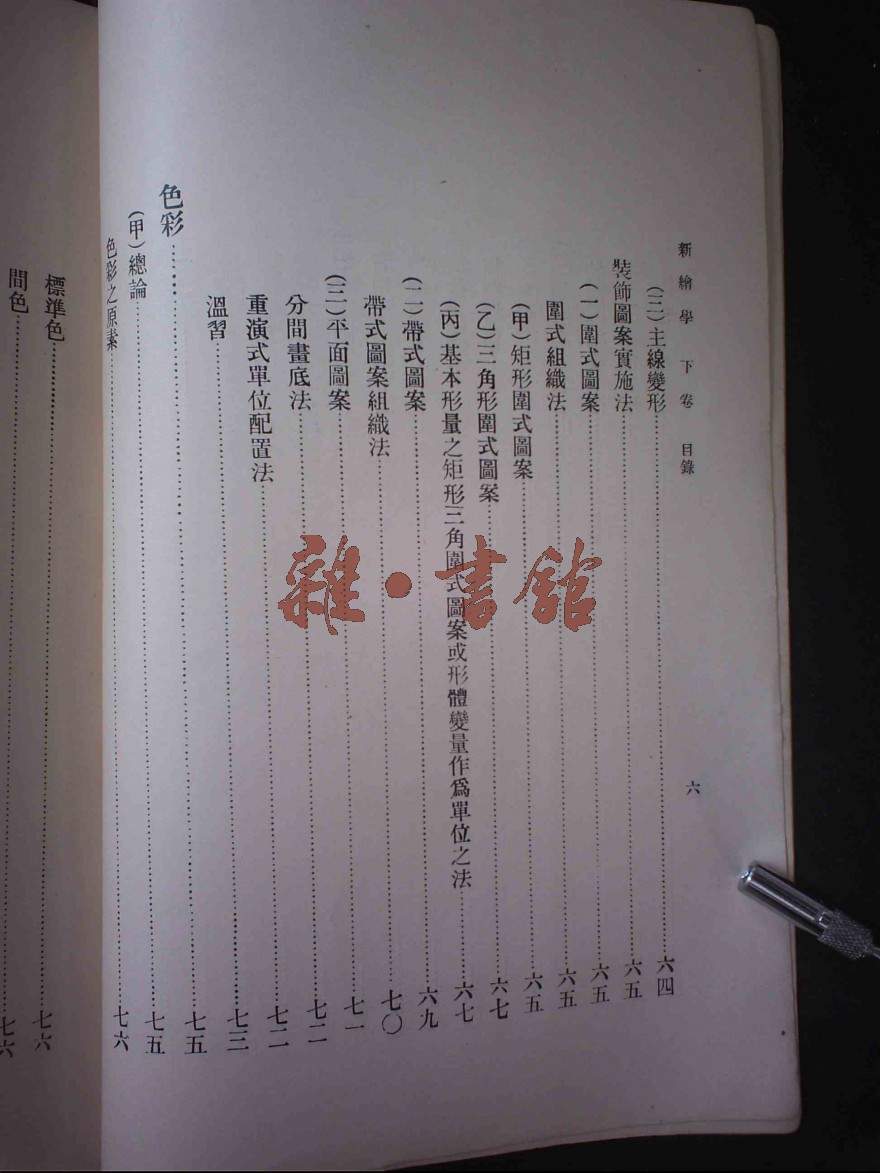 新繪學 下卷 目錄 六
(三)主線變形 六四
裝飾圖案實施法 六五
(一)圍式圖案 六五
圍式組織法 六五
(甲)矩形圍式圖案 六五
(乙)三角形圍式圖案 六七
(丙)基本形量之矩形三角圍式圖案或形體變量作爲單位之法 六七
(二)帶式圖案 六九
帶式圖案組織法 七〇
(三)平面圖案 七一
分間畫底法 七二
重演式單位配置法 七二
溫習 七三
色彩 七五
(甲)總論 七五
色彩之原素 七六
標準色 七六
間色 七六
雜·書館